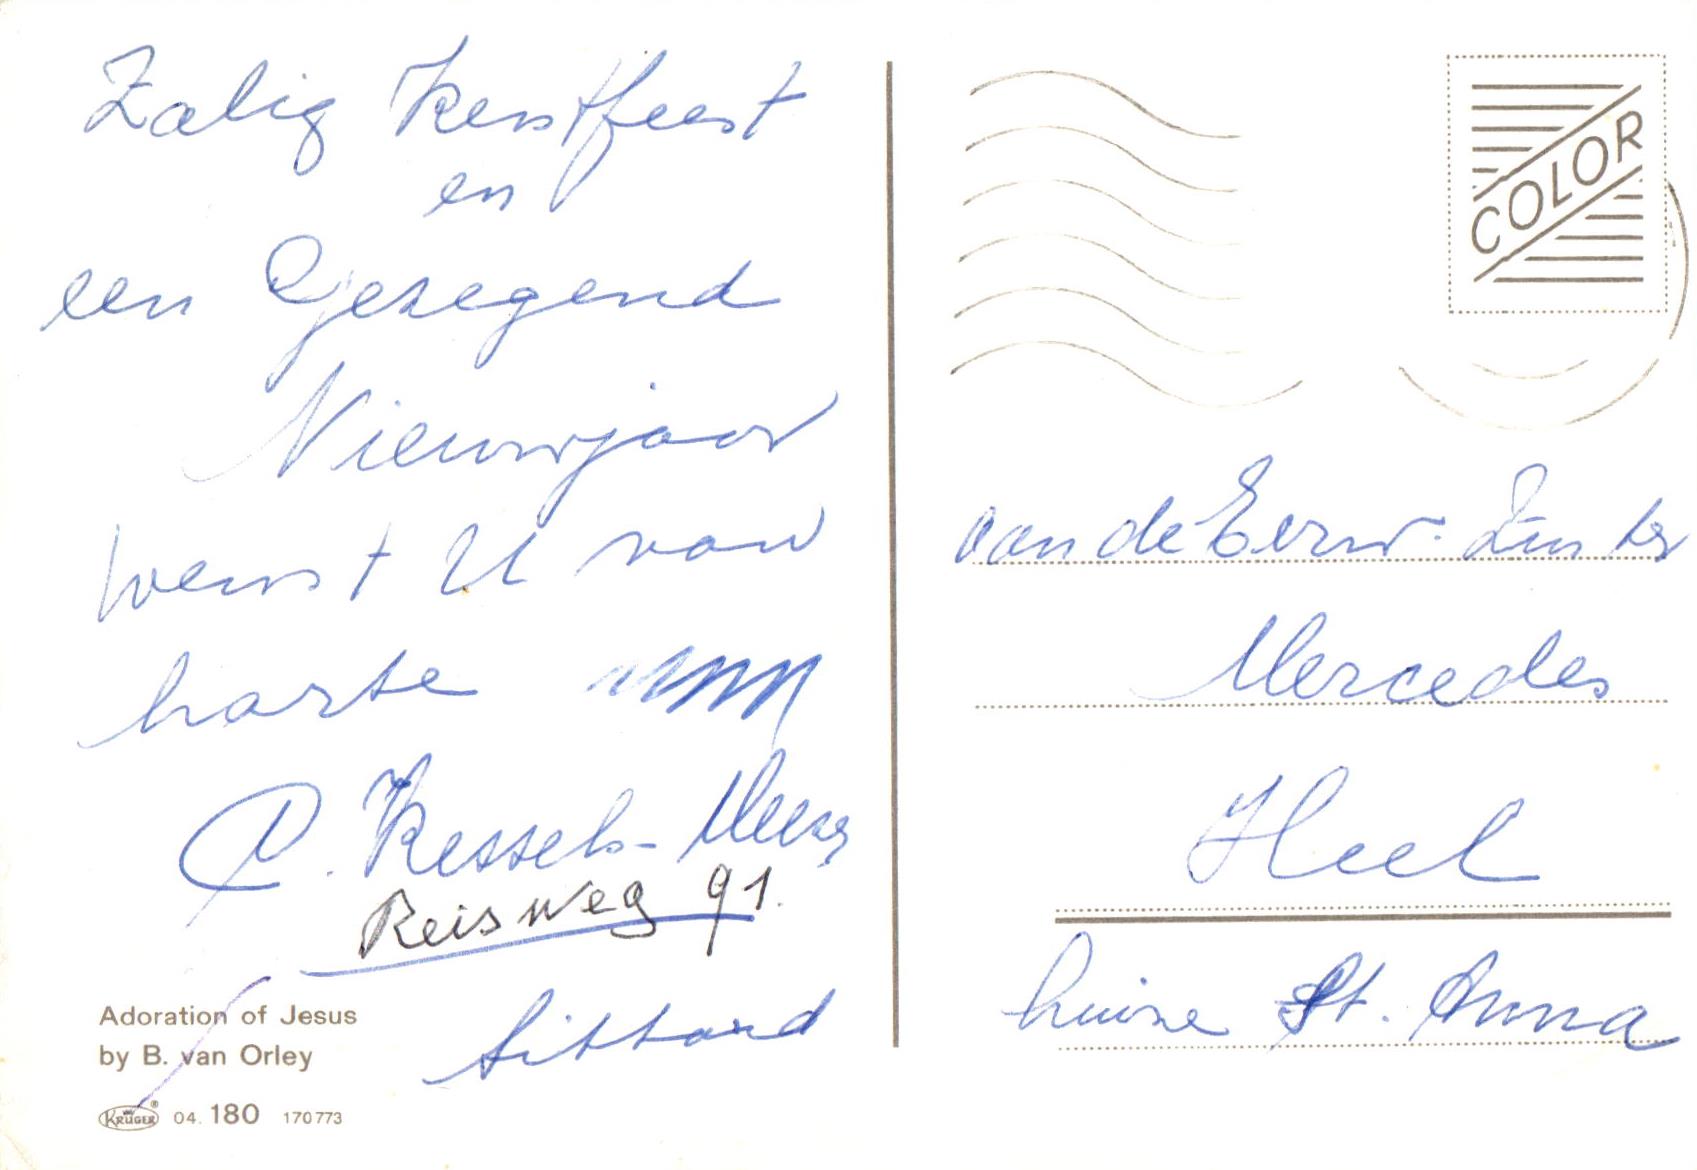 Zalig Kerstfeest
en
een Gezegend
Nieuwjaar
wenst U van
harte
C. Kessels-
Reisweg 91.
Sittard
Adoration of Jesus
by B. van Orley
KRÜGER ® 04. 180 170773
COLOR
aan de Eerw. Zuster
Mercedes
Heel
huize St. Anna